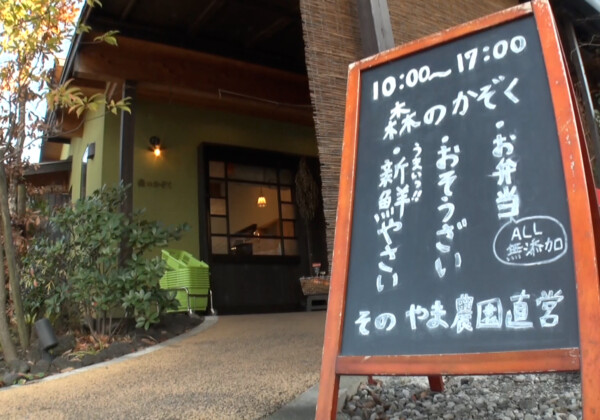 10:00〜17:00
森のかぞく
・お弁当
ALL
無添加
・おそうざい
うまいっ!!
・新鮮やさい
そのやま農園直営
森のかぞく